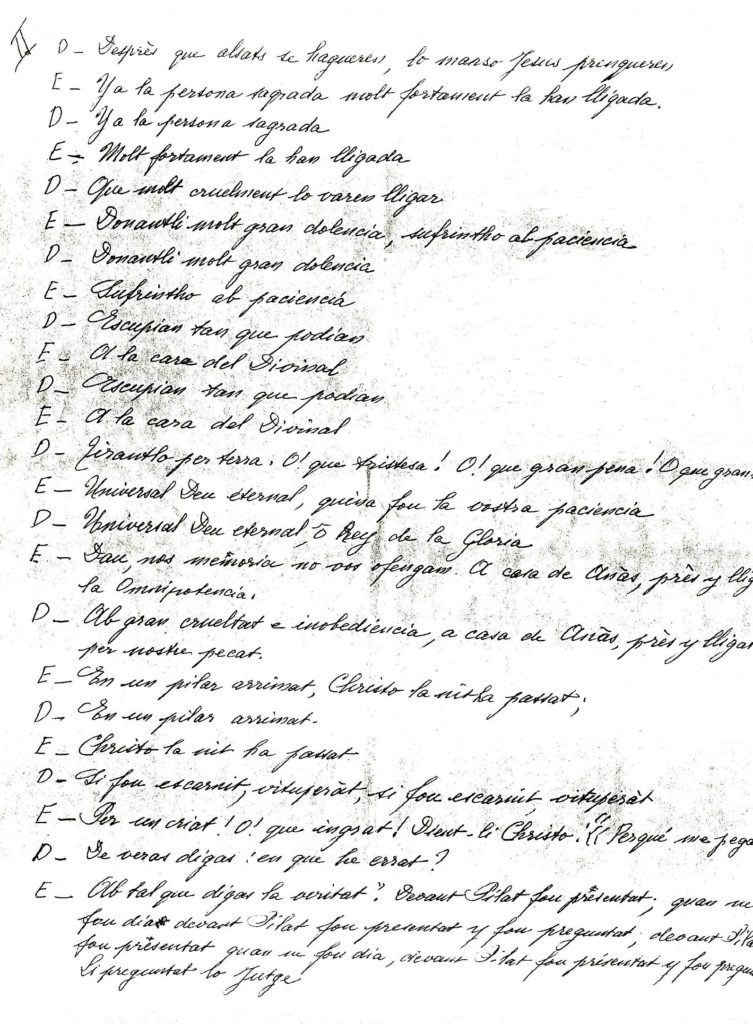 II
D - Desprès que alsats se hagueren, lo manso Jesus prengueren
E - Ya la persona sagrada molt fortament la han lligada.
D - Ya la persona sagrada
E - Molt fortament la han lligada
D - Que molt cruelment lo varen lligar
E - Donantli molt gran dolencia, sufrintho ab paciencia
D - Donantli molt gran dolencia
E - Sufrintho ab paciencia
D - Escupian tan que podian
E - A la cara del Divinal
D - Escupian tan que podian
E - A la cara del Divinal
D - Tirantlo per terra. O! que tristesa! O! que gran pena! O que gran
E - Universal Deu eternal, quina fou la vostra paciencia
D - Universal Deu eternal, ò Rey de la Gloria
E - Dau, nos memoria no vos ofengam. A casa de Anàs, près y llig
la Omnipotencia.
D - Ab gran crueltat e inobediencia, a casa de Anàs, près y lligat
per nostre pecat.
E - En un pilar arrimat, Christo la nit ha passat;
D - En un pilar arrimat.
E - Christo la nit ha passat
D - Si fou escarnit, vituperàt, si fou escarnit vituperàt
E - Per un criat! O! que ingrat! Dient-li Christo: "¿Perqué me pega
D - De veras digas: en que he errat?
E - Ab tal que digas la veritat". Devant Pilat fou presentat; quan ne
fou dia devant Pilat fou presentat y fou preguntat; devant Pila
fou présentat quan ne fou dia, devant Pilat fou présentat y fou pregun
Li preguntat lo Jutge